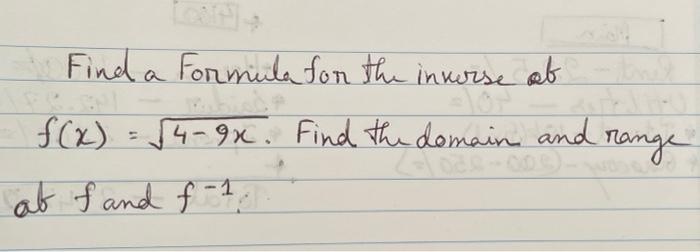 Find a Formula for the inverse of
f(x) = √4-9x. Find the domain and range
of f and f⁻¹.